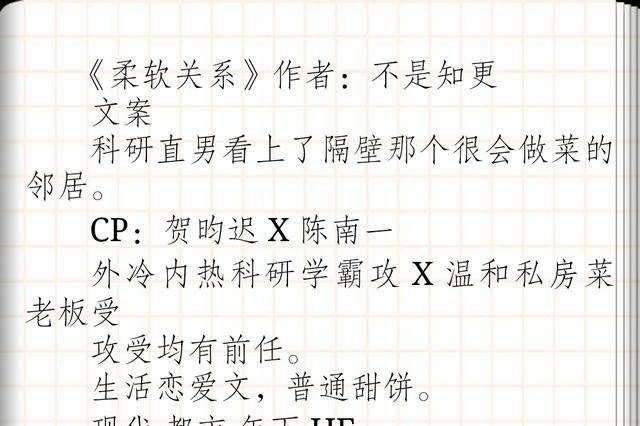 《柔软关系》作者：不是知更
文案
科研直男看上了隔壁那个很会做菜的
邻居。
CP：贺昀迟 X 陈南一
外冷内热科研学霸攻 X 温和私房菜
老板受
攻受均有前任。
生活恋爱文，普通甜饼。
现代 都市 年下 HE